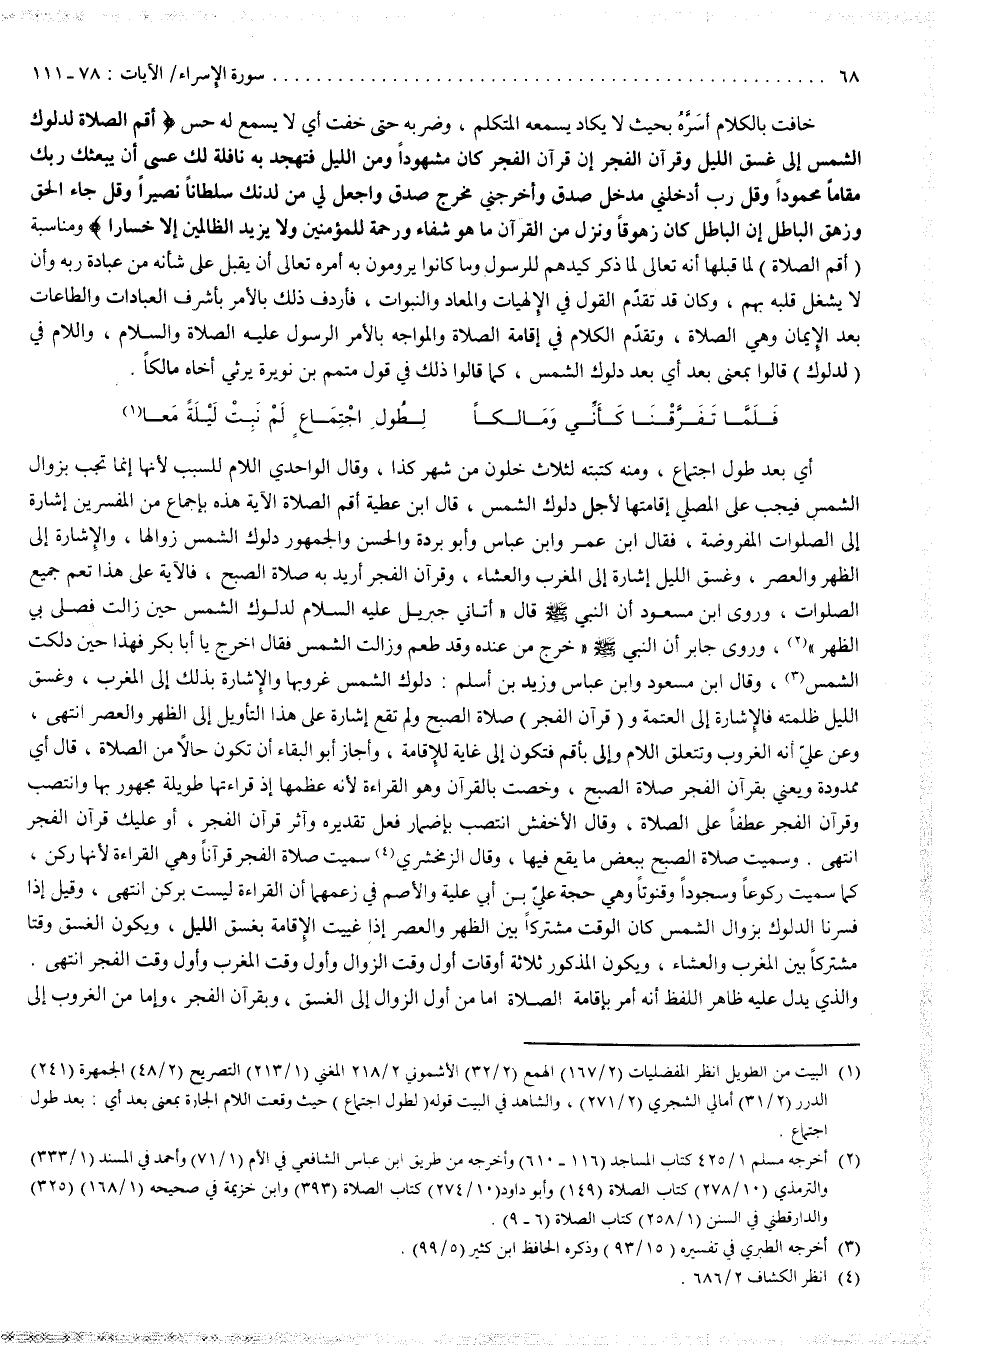 ٦٨ ........................................................ سورة الإسراء/ الآيات : ٧٨ - ١١١
خافت بالكلام أسَرَّهُ بحيث لا يكاد يسمعه المتكلم ، وضربه حتى خفت أي لا يسمع له حس ﴿ أقم الصلاة لدلوك
الشمس إلى غسق الليل وقرآن الفجر إن قرآن الفجر كان مشهوداً ومن الليل فتهجد به نافلة لك عسى أن يبعثك ربك
مقاماً محموداً وقل رب أدخلني مدخل صدق وأخرجني مخرج صدق واجعل لي من لدنك سلطاناً نصيراً وقل جاء الحق
وزهق الباطل إن الباطل كان زهوقاً ونزل من القرآن ما هو شفاء ورحمة للمؤمنين ولا يزيد الظالمين إلا خسارا ﴾ ومناسبة
( أقم الصلاة ) لما قبلها أنه تعالى لما ذكر كيدهم للرسول وما كانوا يرومون به أمره تعالى أن يقبل على شأنه من عبادة ربه وأن
لا يشغل قلبه بهم ، وكان قد تقدّم القول في الإلهيات والمعاد والنبوات ، فأردف ذلك بالأمر بأشرف العبادات والطاعات
بعد الإيمان وهي الصلاة ، وتقدّم الكلام في إقامة الصلاة والمواجه بالأمر الرسول عليه الصلاة والسلام ، واللام في
( لدلوك ) قالوا بمعنى بعد أي بعد دلوك الشمس ، كما قالوا ذلك في قول متمم بن نويرة يرثي أخاه مالكاً .
فَلَمَّا تَفَرَّقْنَا كَأَنِّي وَمَالِكاً لِطُولِ اجْتِمَاعٍ لَمْ نَبِتْ لَيْلَةً مَعَا(١)
أي بعد طول اجتماع ، ومنه كتبته لثلاث خلون من شهر كذا ، وقال الواحدي اللام للسبب لأنها إنما تجب بزوال
الشمس فيجب على المصلي إقامتها لأجل دلوك الشمس ، قال ابن عطية أقم الصلاة الآية هذه بإجماع من المفسرين إشارة
إلى الصلوات المفروضة ، فقال ابن عمر وابن عباس وأبو بردة والحسن والجمهور دلوك الشمس زوالها ، والإشارة إلى
الظهر والعصر ، وغسق الليل إشارة إلى المغرب والعشاء ، وقرآن الفجر أريد به صلاة الصبح ، فالآية على هذا تعم جميع
الصلوات ، وروى ابن مسعود أن النبي ﷺ قال « أتاني جبريل عليه السلام لدلوك الشمس حين زالت فصلى بي
الظهر »(٢) ، وروى جابر أن النبي ﷺ « خرج من عنده وقد طعم وزالت الشمس فقال اخرج يا أبا بكر فهذا حين دلكت
الشمس(٣) ، وقال ابن مسعود وابن عباس وزيد بن أسلم : دلوك الشمس غروبها والإشارة بذلك إلى المغرب ، وغسق
الليل ظلمته فالإشارة إلى العتمة و ( قرآن الفجر ) صلاة الصبح ولم تقع إشارة على هذا التأويل إلى الظهر والعصر انتهى ،
وعن عليّ أنه الغروب وتتعلق اللام وإلى بأقم فتكون إلى غاية للإقامة ، وأجاز أبو البقاء أن تكون حالاً من الصلاة ، قال أي
ممدودة ويعني بقرآن الفجر صلاة الصبح ، وخصت بالقرآن وهو القراءة لأنه عظمها إذ قراءتها طويلة مجهور بها وانتصب
وقرآن الفجر عطفاً على الصلاة ، وقال الأخفش انتصب بإضمار فعل تقديره وآثر قرآن الفجر ، أو عليك قرآن الفجر
انتهى . وسميت صلاة الصبح ببعض ما يقع فيها ، وقال الزمخشري(٤) سميت صلاة الفجر قرآناً وهي القراءة لأنها ركن ،
كما سميت ركوعاً وسجوداً وقنوتاً وهي حجة عليّ بن أبي علية والأصم في زعمهما أن القراءة ليست بركن انتهى ، وقيل إذا
فسرنا الدلوك بزوال الشمس كان الوقت مشتركاً بين الظهر والعصر إذا غييت الإقامة بغسق الليل ، ويكون الغسق وقتا
مشتركاً بين المغرب والعشاء ، ويكون المذكور ثلاثة أوقات أول وقت الزوال وأول وقت المغرب وأول وقت الفجر انتهى .
والذي يدل عليه ظاهر اللفظ أنه أمر بإقامة الصلاة اما من أول الزوال إلى الغسق ، وبقرآن الفجر ،وإما من الغروب إلى
(١) البيت من الطويل انظر المفضليات (١٦٧/٢) الهمع (٣٢/٢) الأشموني ٢١٨/٢ المغني (٢١٣/١) التصريح (٤٨/٢) الجمهرة (٢٤١)
الدرر (٣١/٢) أمالي الشجري (٢٧١/٢) ، والشاهد في البيت قوله( لطول اجتماع ) حيث وقعت اللام الجارة بمعنى بعد أي : بعد طول
اجتماع .
(٢) أخرجه مسلم ٤٢٥/١ كتاب المساجد (١١٦ - ٦١٠) وأخرجه من طريق ابن عباس الشافعي في الأم (٧١/١) وأحمد في المسند (٣٣٣/١)
والترمذي (٢٧٨/١٠) كتاب الصلاة (١٤٩) وأبو داود(٢٧٤/١٠) كتاب الصلاة (٣٩٣) وابن خزيمة في صحيحه (١٦٨/١) (٣٢٥)
والدارقطني في السنن (٢٥٨/١) كتاب الصلاة (٦ - ٩) .
(٣) أخرجه الطبري في تفسيره ( ٩٣/١٥ ) وذكره الحافظ ابن كثير (٩٩/٥) .
(٤) انظر الكشاف ٦٨٦/٢ .